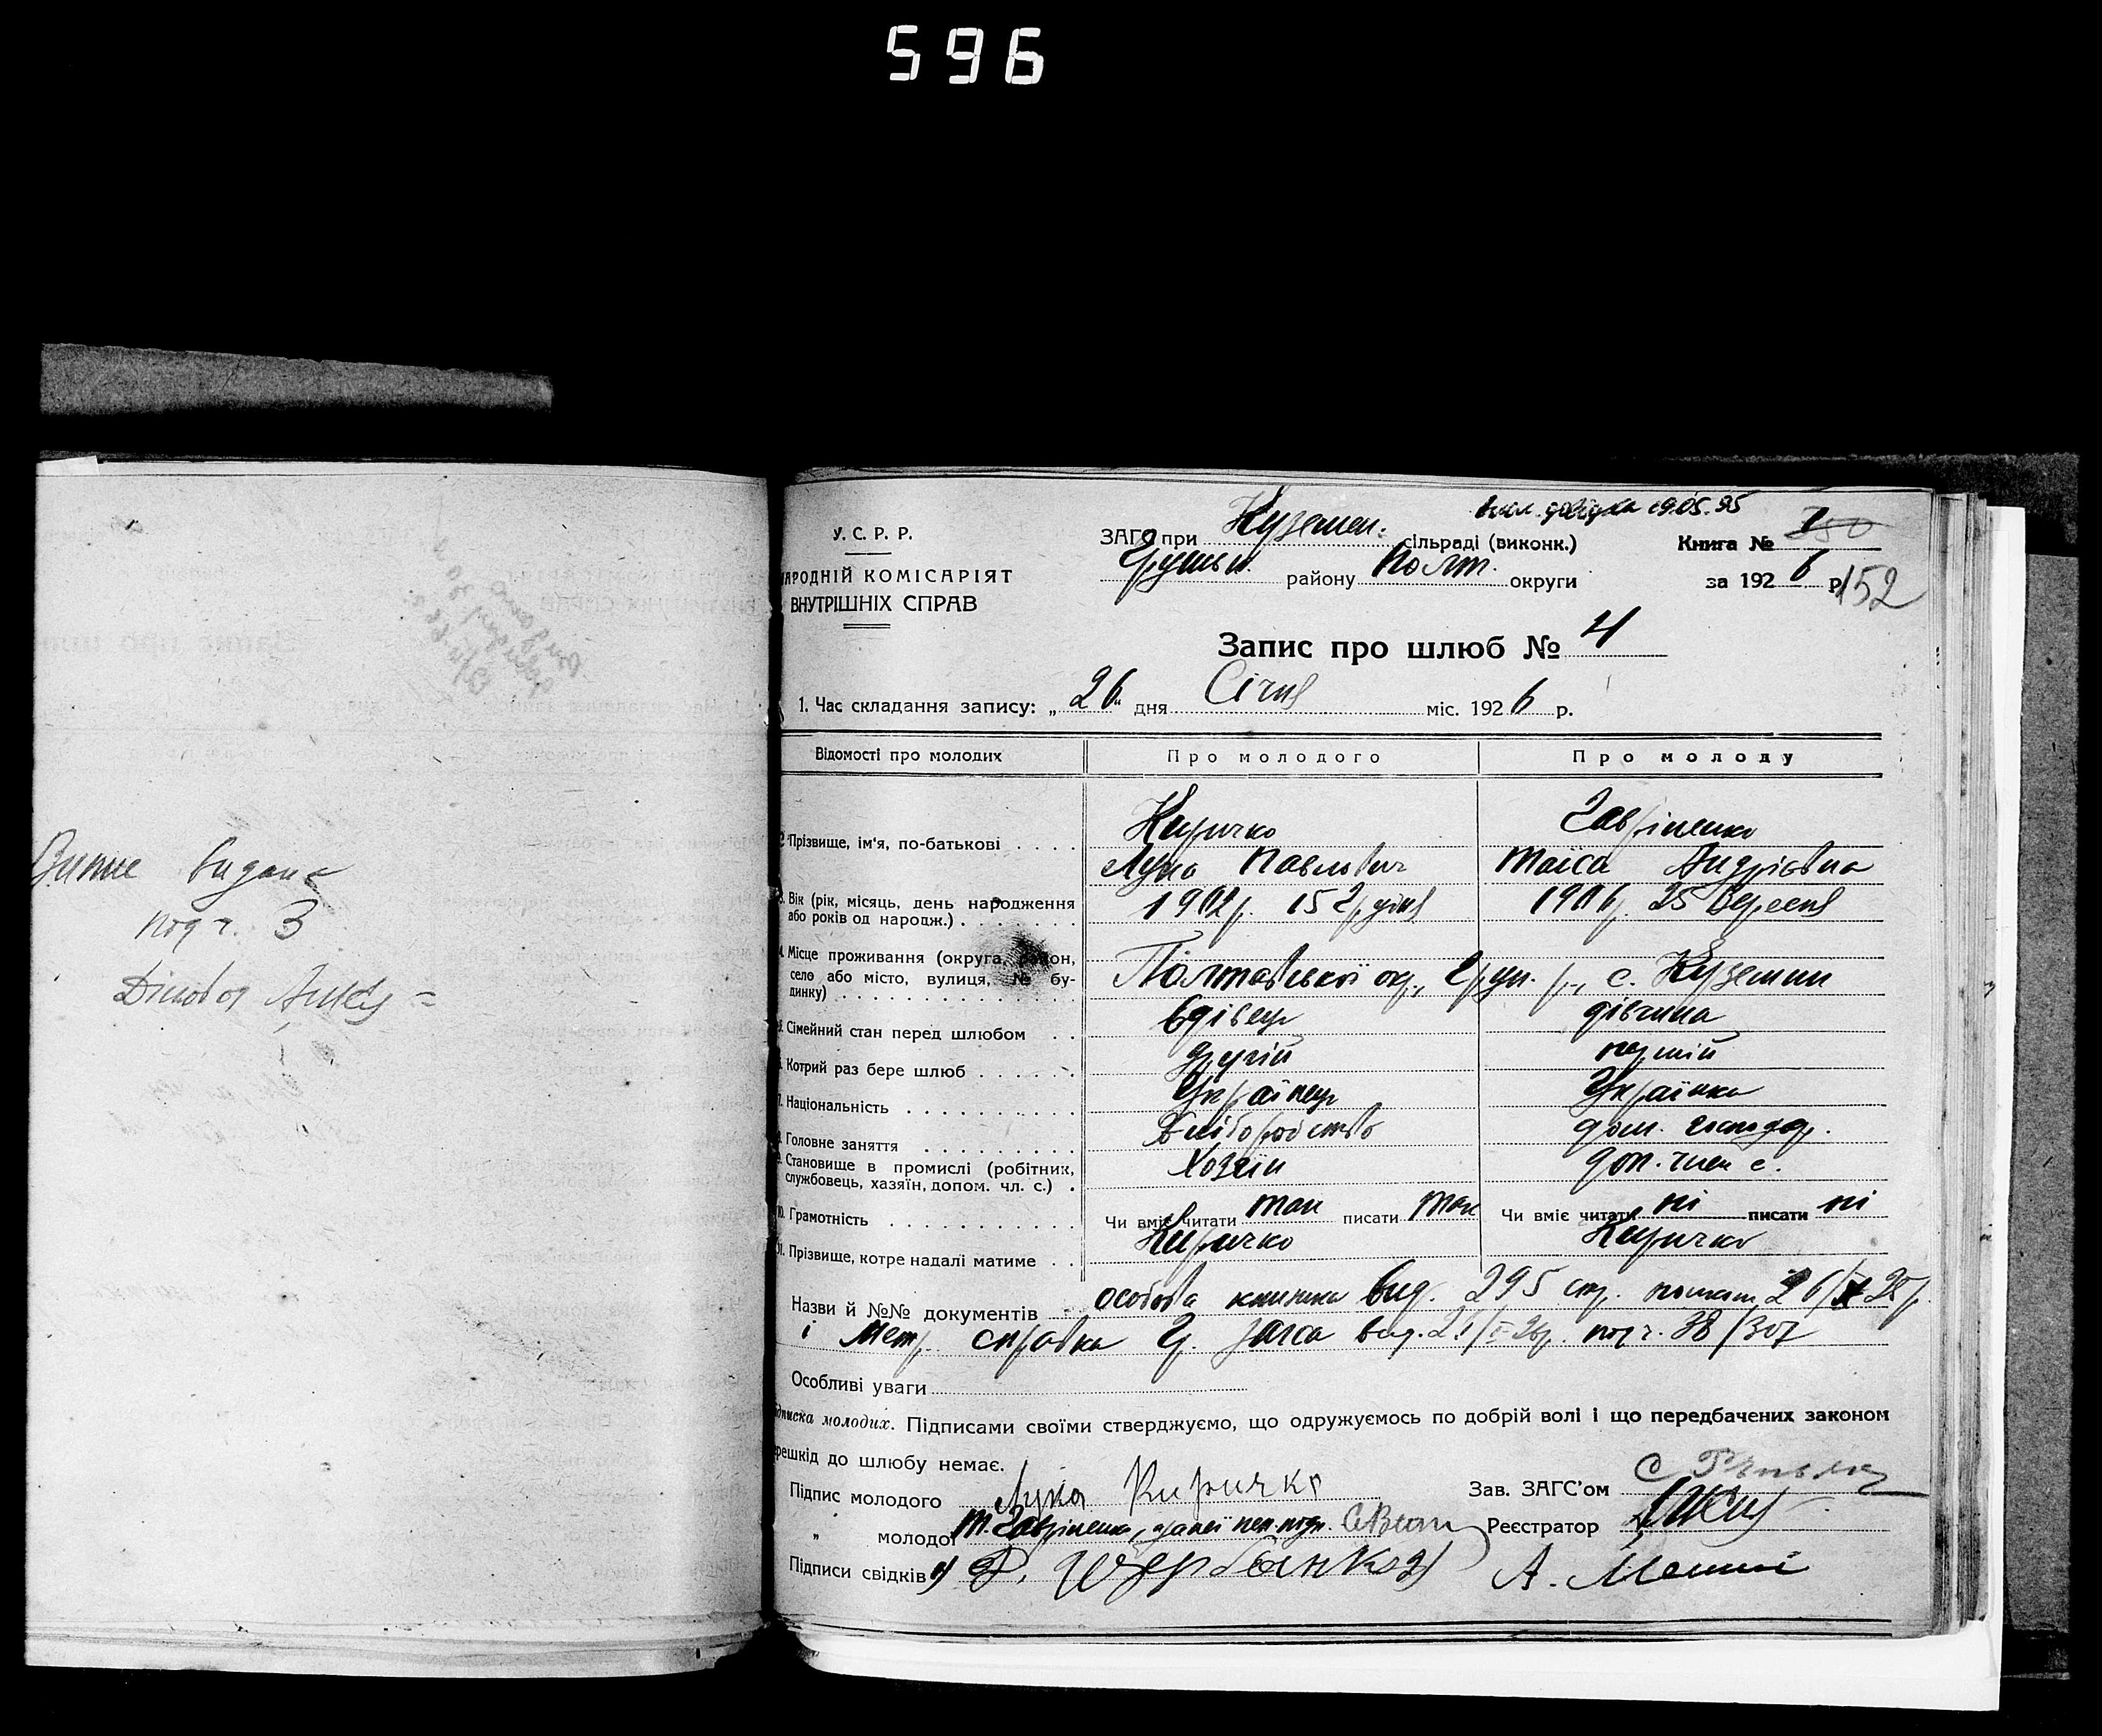 596
Витяг видано
под ч. 3
У. С. Р. Р.
НАРОДНІЙ КОМІСАРІЯТ
ВНУТРІШНІХ СПРАВ
19.05.95
ЗАГС при Куземен. сільраді (виконк.)
Грунськ. району Полт. округи
Книга № 150
за 1926 р.
152
Запис про шлюб № 4
1. Час складання запису: „26“ дня Січня міс. 1926 р.
Відомості про молодих Про молодого Про молоду
2. Прізвище, ім'я, по-батькові . . . .
Киричко
Лука Павлович
Гавріленко
Таїса Андрієвна
3. Вік (рік, місяць, день народження
або років од народж.) . . . . . . .
1902р. 15 Грудня
1906р. 25 Вересня
4. Місце проживання (округа, район,
село або місто, вулиця, № бу-
динку) . . . . . . . . . . . . .
Полтавської окр., Грун. р., с. Куземин
5. Сімейний стан перед шлюбом . .
вдівець
дівчина
6. Котрий раз бере шлюб . . . . . .
другій
першій
7. Національність . . . . . . . . . .
Українець
Українка
8. Головне заняття . . . . . . . . . .
Хліборобство
дом. господ.
9. Становище в промислі (робітник,
службовець, хазяїн, допом. чл. с.) .
Хозяїн
доп. член с.
10. Грамотність . . . . . . . . . . .
Чи вміє читати так писати так
Чи вміє читати ні писати ні
11. Прізвище, котре надалі матиме . .
Киричко
Киричко
Назви й №№ документів особова книжка вид. 295 стр.
і метр. справка Г. загса вид. под ч. 38/307
Особливі уваги
Підписка молодих. Підписами своїми стверджуємо, що одружуємось по добрій волі і що передбачених законом
перешкід до шлюбу немає.
Підпис молодого Лука Киричко
Зав. ЗАГС'ом
„ молодої Т. Гавріленко, а за неї неп. подп.
Реєстратор
Підписи свідків 1) Ф. Щербанко 2) А.